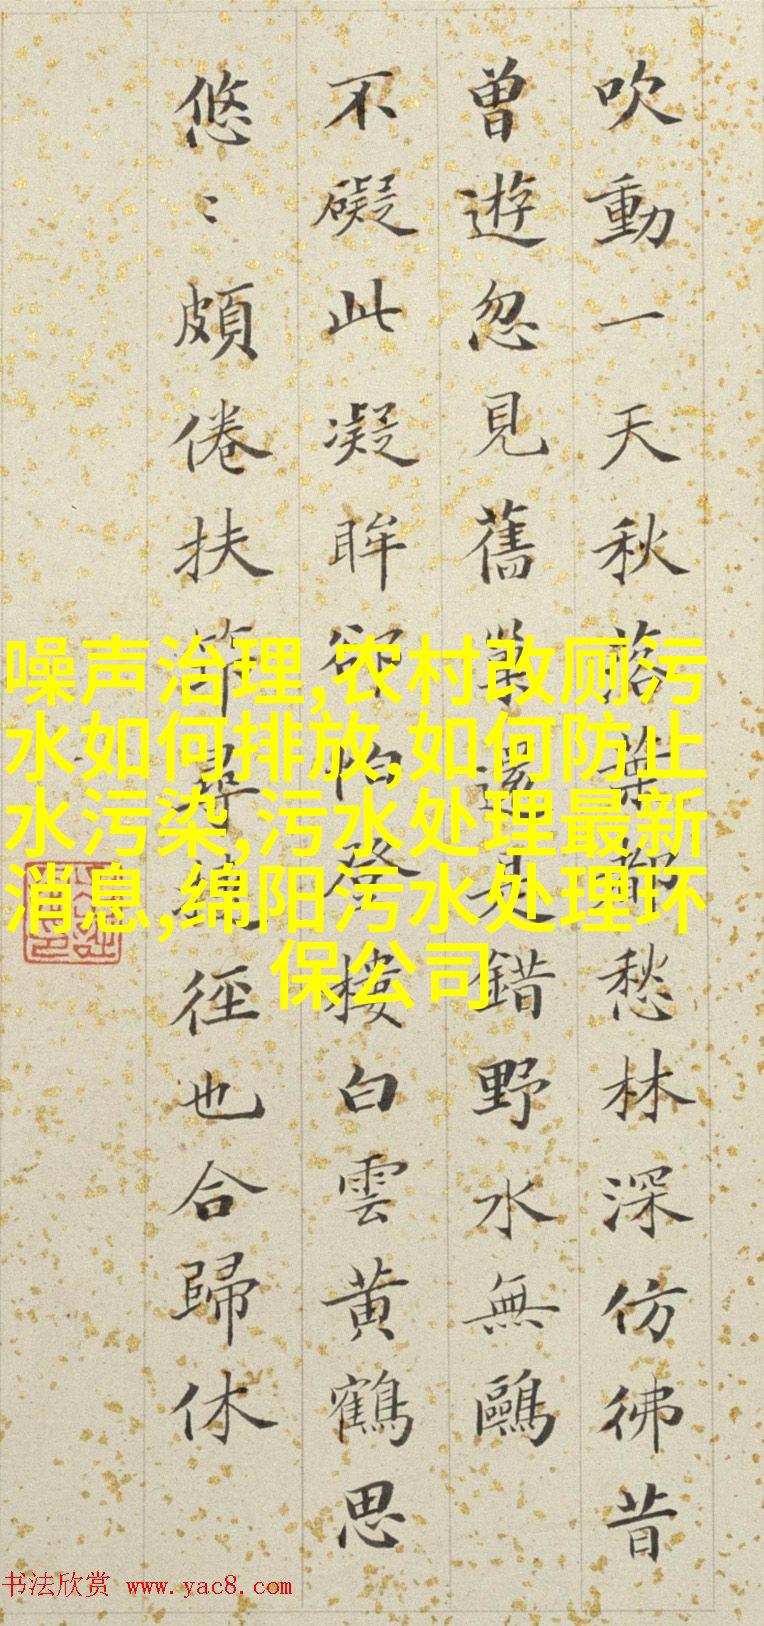 吹動一天秋落葉都愁林深仿彿昔
曾遊忽見舊巢還是錯野水無鷗
不礙此凝眸卻怕登樓白雲黃鶴思
悠〻頗倦扶筇尋徑也合歸休
噪声治理,农村改厕污
水如何排放,如何防止
水污染,污水处理最新
消息,绵阳污水处理环
保公司
书法欣赏 www.yac8.com